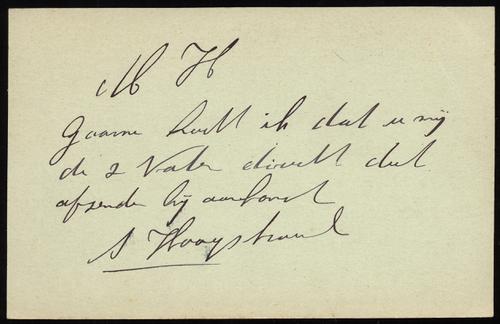 M H
Gaarne had ik dat u mij
de 2 Vaten direkt dat
afzende bij aankomst
S Hooystraat